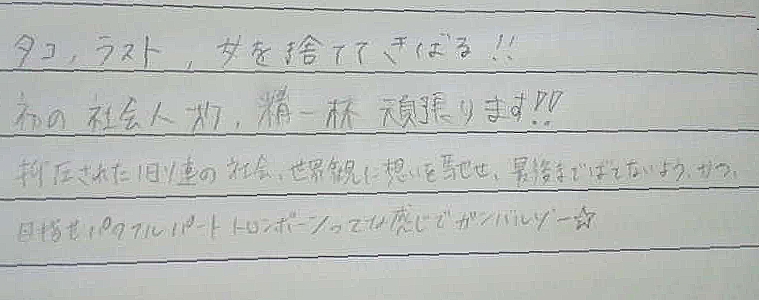 タコ、ラスト、女を捨ててきばる!!
初の社会人オケ、精一杯頑張ります!!
抑圧された旧ソ連の社会、世界観に想いを馳せ、最後までばてないよう、かつ、
目指せパワフルパートトロンボーンってな感じでガンバルゾー☆